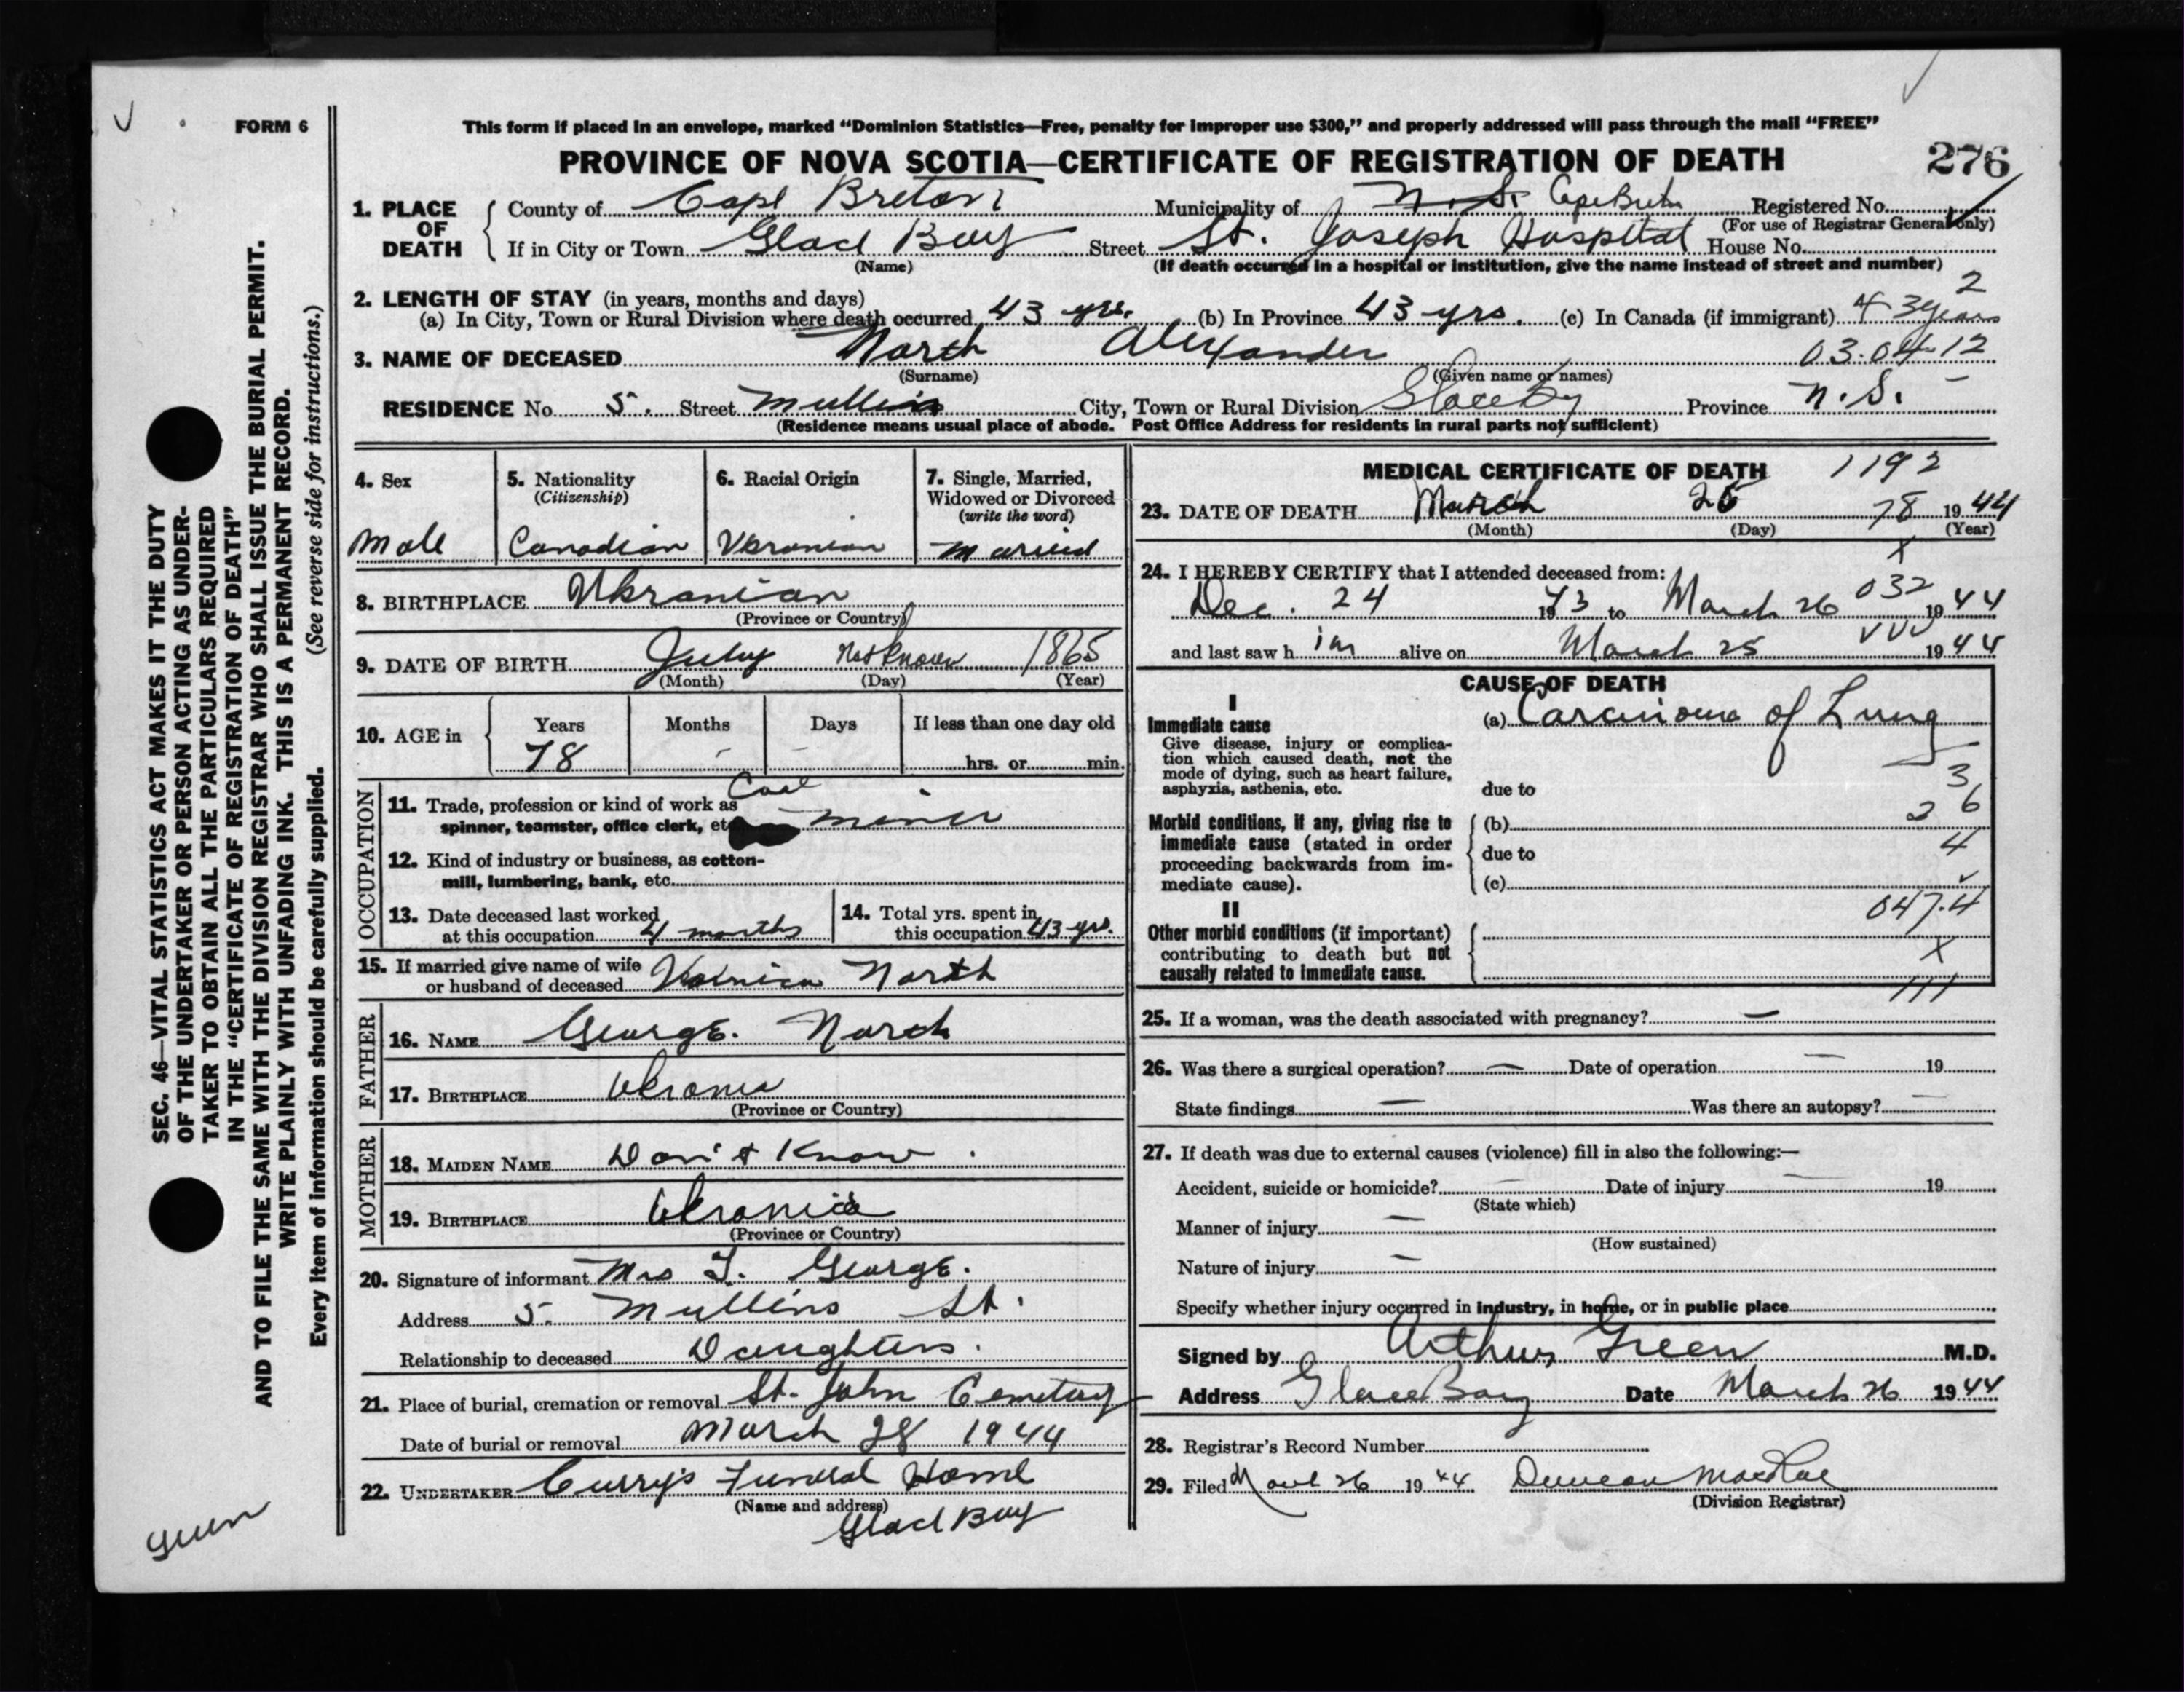 FORM 6
This form if placed in an envelope, marked “Dominion Statistics—Free, penalty for improper use $300,” and properly addressed will pass through the mail “FREE”
PROVINCE OF NOVA SCOTIA—CERTIFICATE OF REGISTRATION OF DEATH
276
1. PLACE OF DEATH County of Cape Breton Municipality of N. S. Cape Breton Registered No.
(For use of Registrar General only)
If in City or Town Glace Bay Street St. Joseph Hospital House No.
(Name) (If death occurred in a hospital or institution, give the name instead of street and number)
2. LENGTH OF STAY (in years, months and days) 2
(a) In City, Town or Rural Division where death occurred 43 yrs. (b) In Province 43 yrs. (c) In Canada (if immigrant) 43 years
3. NAME OF DECEASED North Alexander 03.04-12
(Surname) (Given name or names)
RESIDENCE No. 5. Street Mullins City, Town or Rural Division Glace By Province N.S.
(Residence means usual place of abode. Post Office Address for residents in rural parts not sufficient)
4. Sex 5. Nationality (Citizenship) 6. Racial Origin 7. Single, Married, Widowed or Divorced (write the word)
Male Canadian Ukranian Married
8. BIRTHPLACE Ukranian
(Province or Country)
9. DATE OF BIRTH July Not Known 1865
(Month) (Day) (Year)
10. AGE in Years Months Days If less than one day old
78 - - hrs. or min.
OCCUPATION
11. Trade, profession or kind of work as spinner, teamster, office clerk, etc. Coal miner
12. Kind of industry or business, as cotton-mill, lumbering, bank, etc.
13. Date deceased last worked at this occupation 4 months
14. Total yrs. spent in this occupation 43 yrs.
15. If married give name of wife or husband of deceased North
FATHER
16. NAME George. North
17. BIRTHPLACE Ukrania
(Province or Country)
MOTHER
18. MAIDEN NAME Don't Know.
19. BIRTHPLACE Ukrania
(Province or Country)
20. Signature of informant Mrs George.
Address 5. Mullins St.
Relationship to deceased Daughters.
21. Place of burial, cremation or removal St. John Cemetery
Date of burial or removal March 28 1944
22. UNDERTAKER Curry's Funeral Home
(Name and address)
Glace Bay
MEDICAL CERTIFICATE OF DEATH 1192
23. DATE OF DEATH March 78 1944
(Month) (Day) (Year)
X
24. I HEREBY CERTIFY that I attended deceased from:
Dec. 24 1943 to March 26 032 1944
and last saw h im alive on March 25 1944
CAUSE OF DEATH
I
Immediate cause (a) Carcinoma of Lung
Give disease, injury or complication which caused death, not the mode of dying, such as heart failure, asphyxia, asthenia, etc.
due to 3
Morbid conditions, if any, giving rise to immediate cause (stated in order proceeding backwards from immediate cause).
(b) 26
due to 4
(c)
047.4
II
Other morbid conditions (if important) contributing to death but not causally related to immediate cause.
X
111
25. If a woman, was the death associated with pregnancy? —
26. Was there a surgical operation? — Date of operation — 19
State findings — Was there an autopsy? —
27. If death was due to external causes (violence) fill in also the following:—
Accident, suicide or homicide? — Date of injury — 19
(State which)
Manner of injury —
(How sustained)
Nature of injury —
Specify whether injury occurred in industry, in home, or in public place
Signed by Arthur Green M.D.
Address Glace Bay Date March 26 1944
28. Registrar's Record Number
29. Filed March 26 1944 Duncan MacRae
(Division Registrar)
SEC. 46—VITAL STATISTICS ACT MAKES IT THE DUTY
OF THE UNDERTAKER OR PERSON ACTING AS UNDER-
TAKER TO OBTAIN ALL THE PARTICULARS REQUIRED
IN THE “CERTIFICATE OF REGISTRATION OF DEATH”
AND TO FILE THE SAME WITH THE DIVISION REGISTRAR WHO SHALL ISSUE THE BURIAL PERMIT.
WRITE PLAINLY WITH UNFADING INK. THIS IS A PERMANENT RECORD.
Every item of information should be carefully supplied. (See reverse side for instructions.)